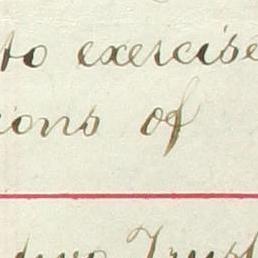 to exercise
ions of
two Trust